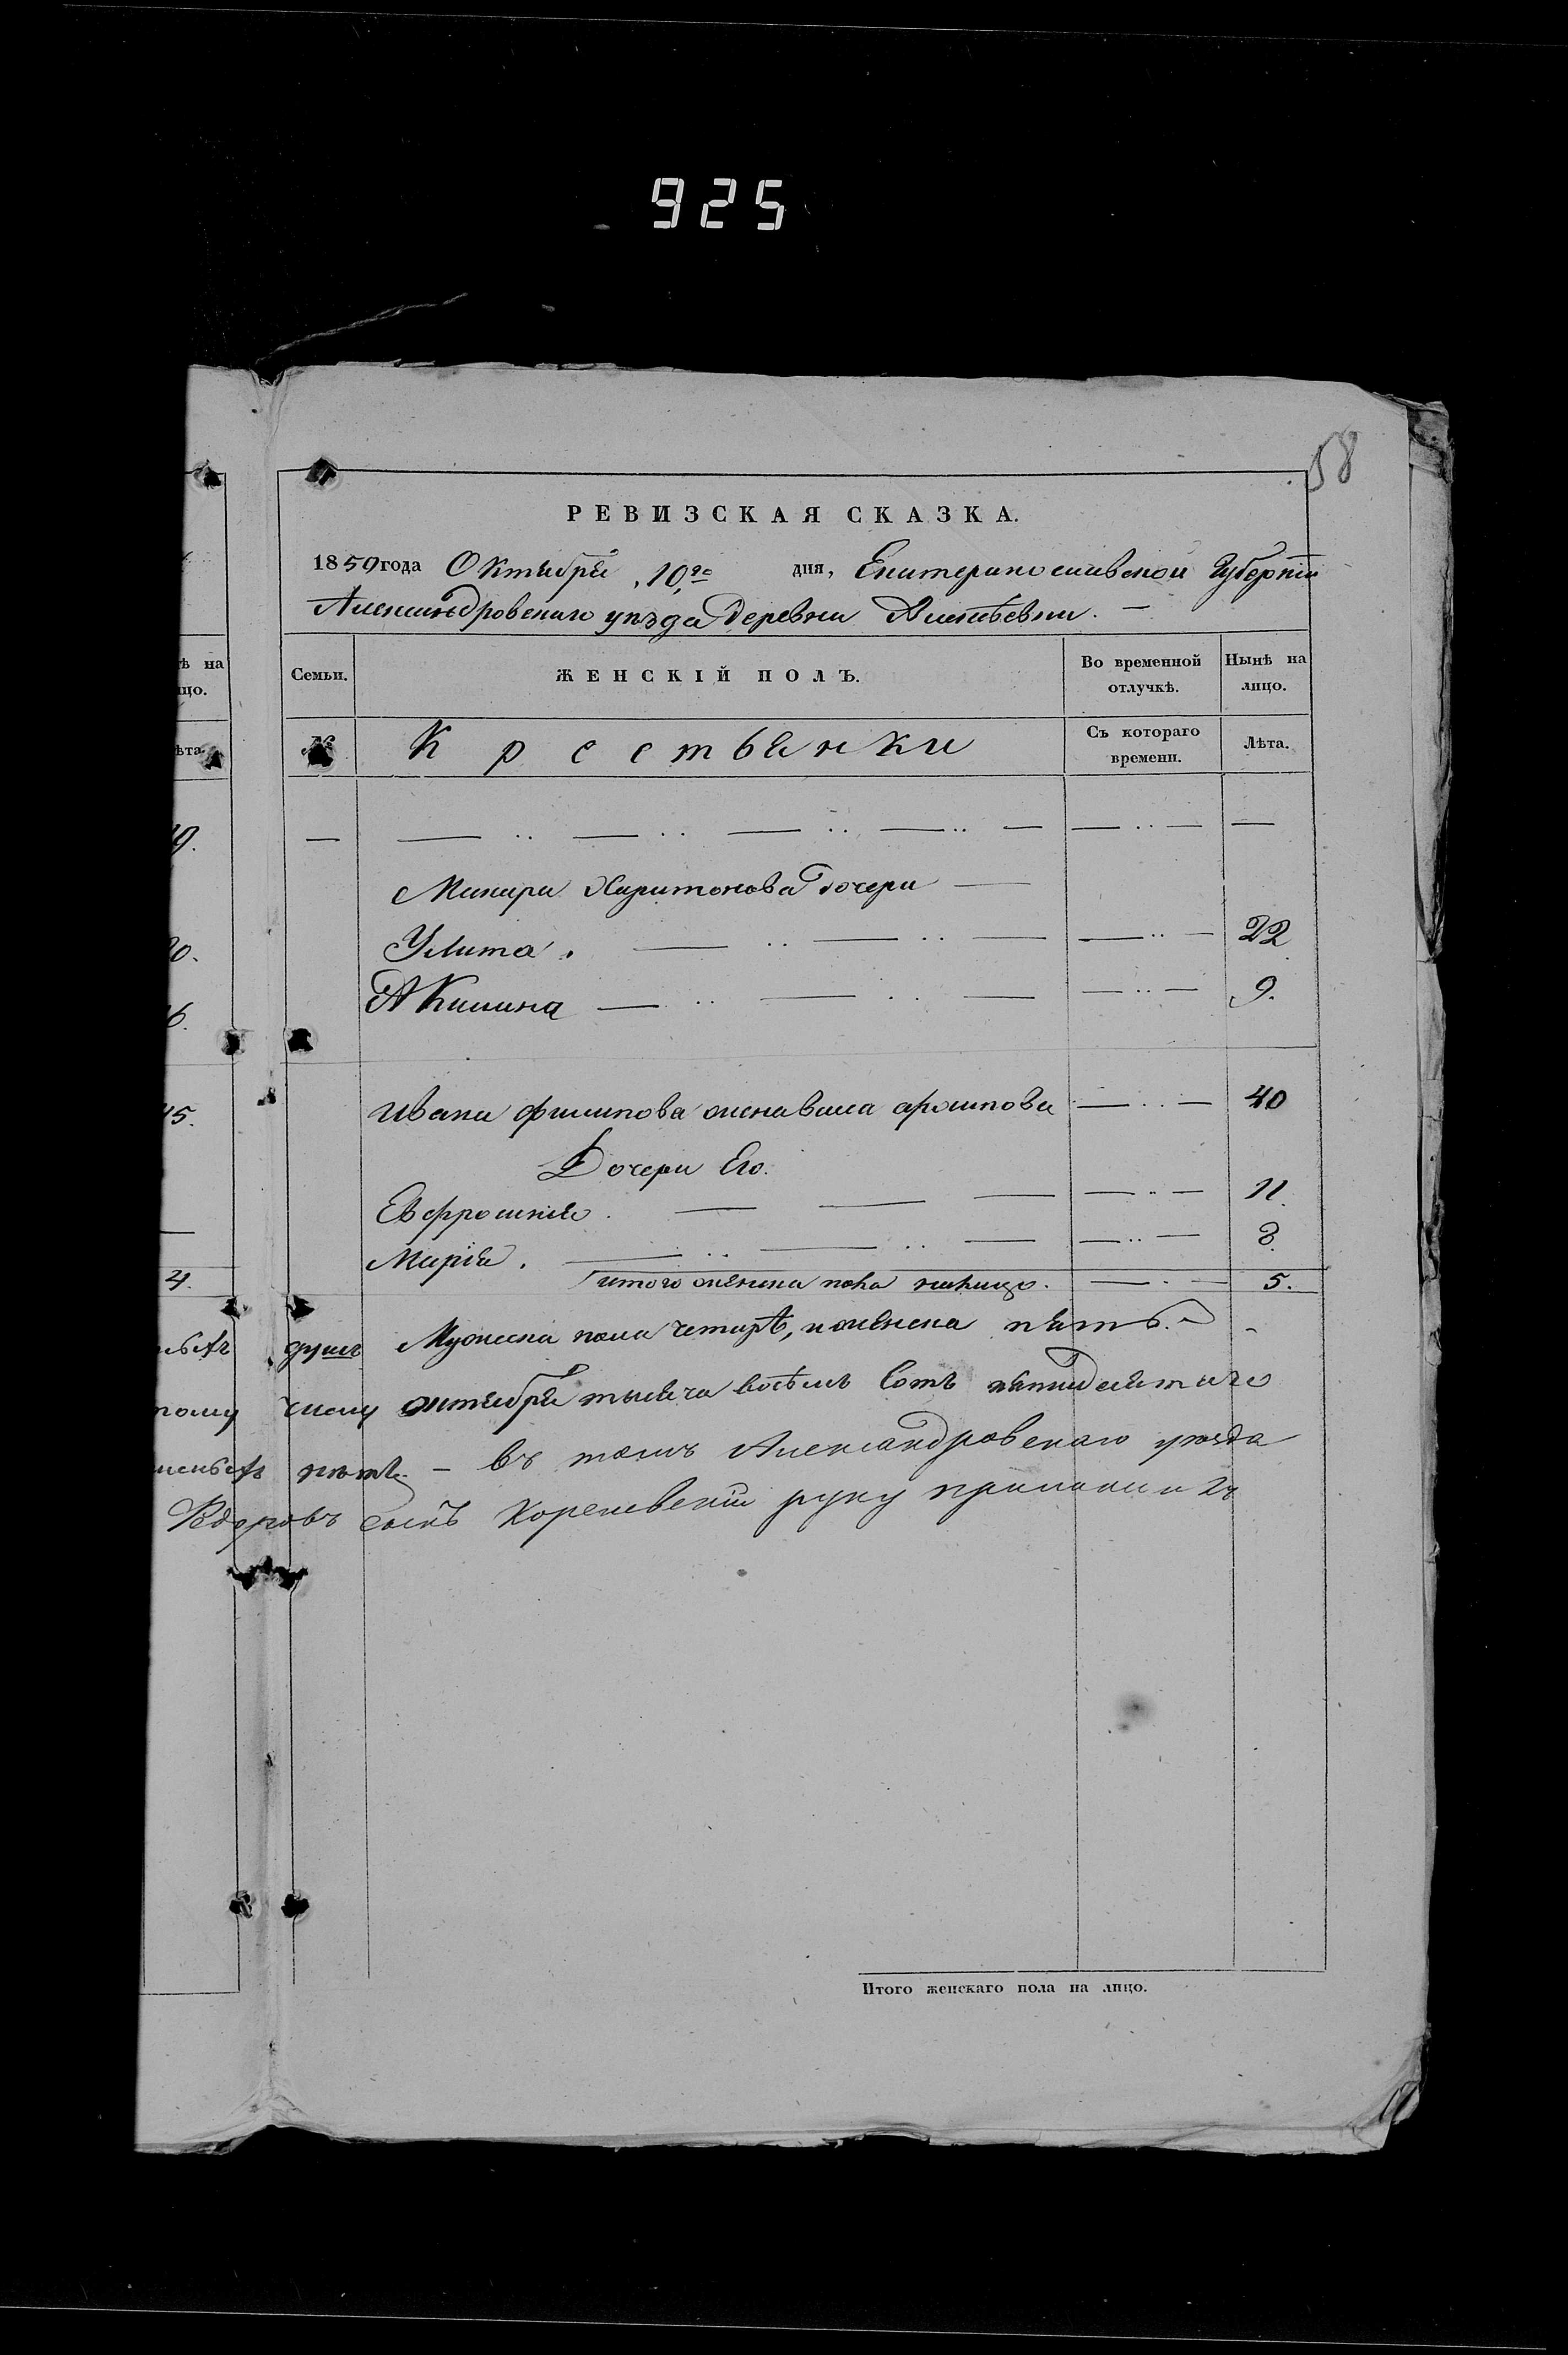 925
58
РЕВИЗСКАЯ СКАЗКА.
1850 года Октября 10го дня, Екатеринославской Губерніи
Александровскаго уѣзда деревни Алексѣевки. —
Семьи. ЖЕНСКІЙ ПОЛЪ. Во временной отлучкѣ. Нынѣ на лицо.
№ Крестьянки Съ котораго времени. Лѣта.
Макара Харитонова дочери
Улита. 22
Акилина 9.
Ивана Филипова жена Васа 40
Дочери Его.
Евфросинія. 11
Марія. 8.
итого женска пола налицо. 5.
душъ Мужеска пола четырѣ, и женска пять.
числу октября тысяча восѣмъ Сотъ пятидесятаго
въ томъ Александровскаго уѣзда
сынъ руку приложилъ
Итого женскаго пола на лицо.
ѣ на
цо.
ѣта.
9.
0.
6.
45.
4.